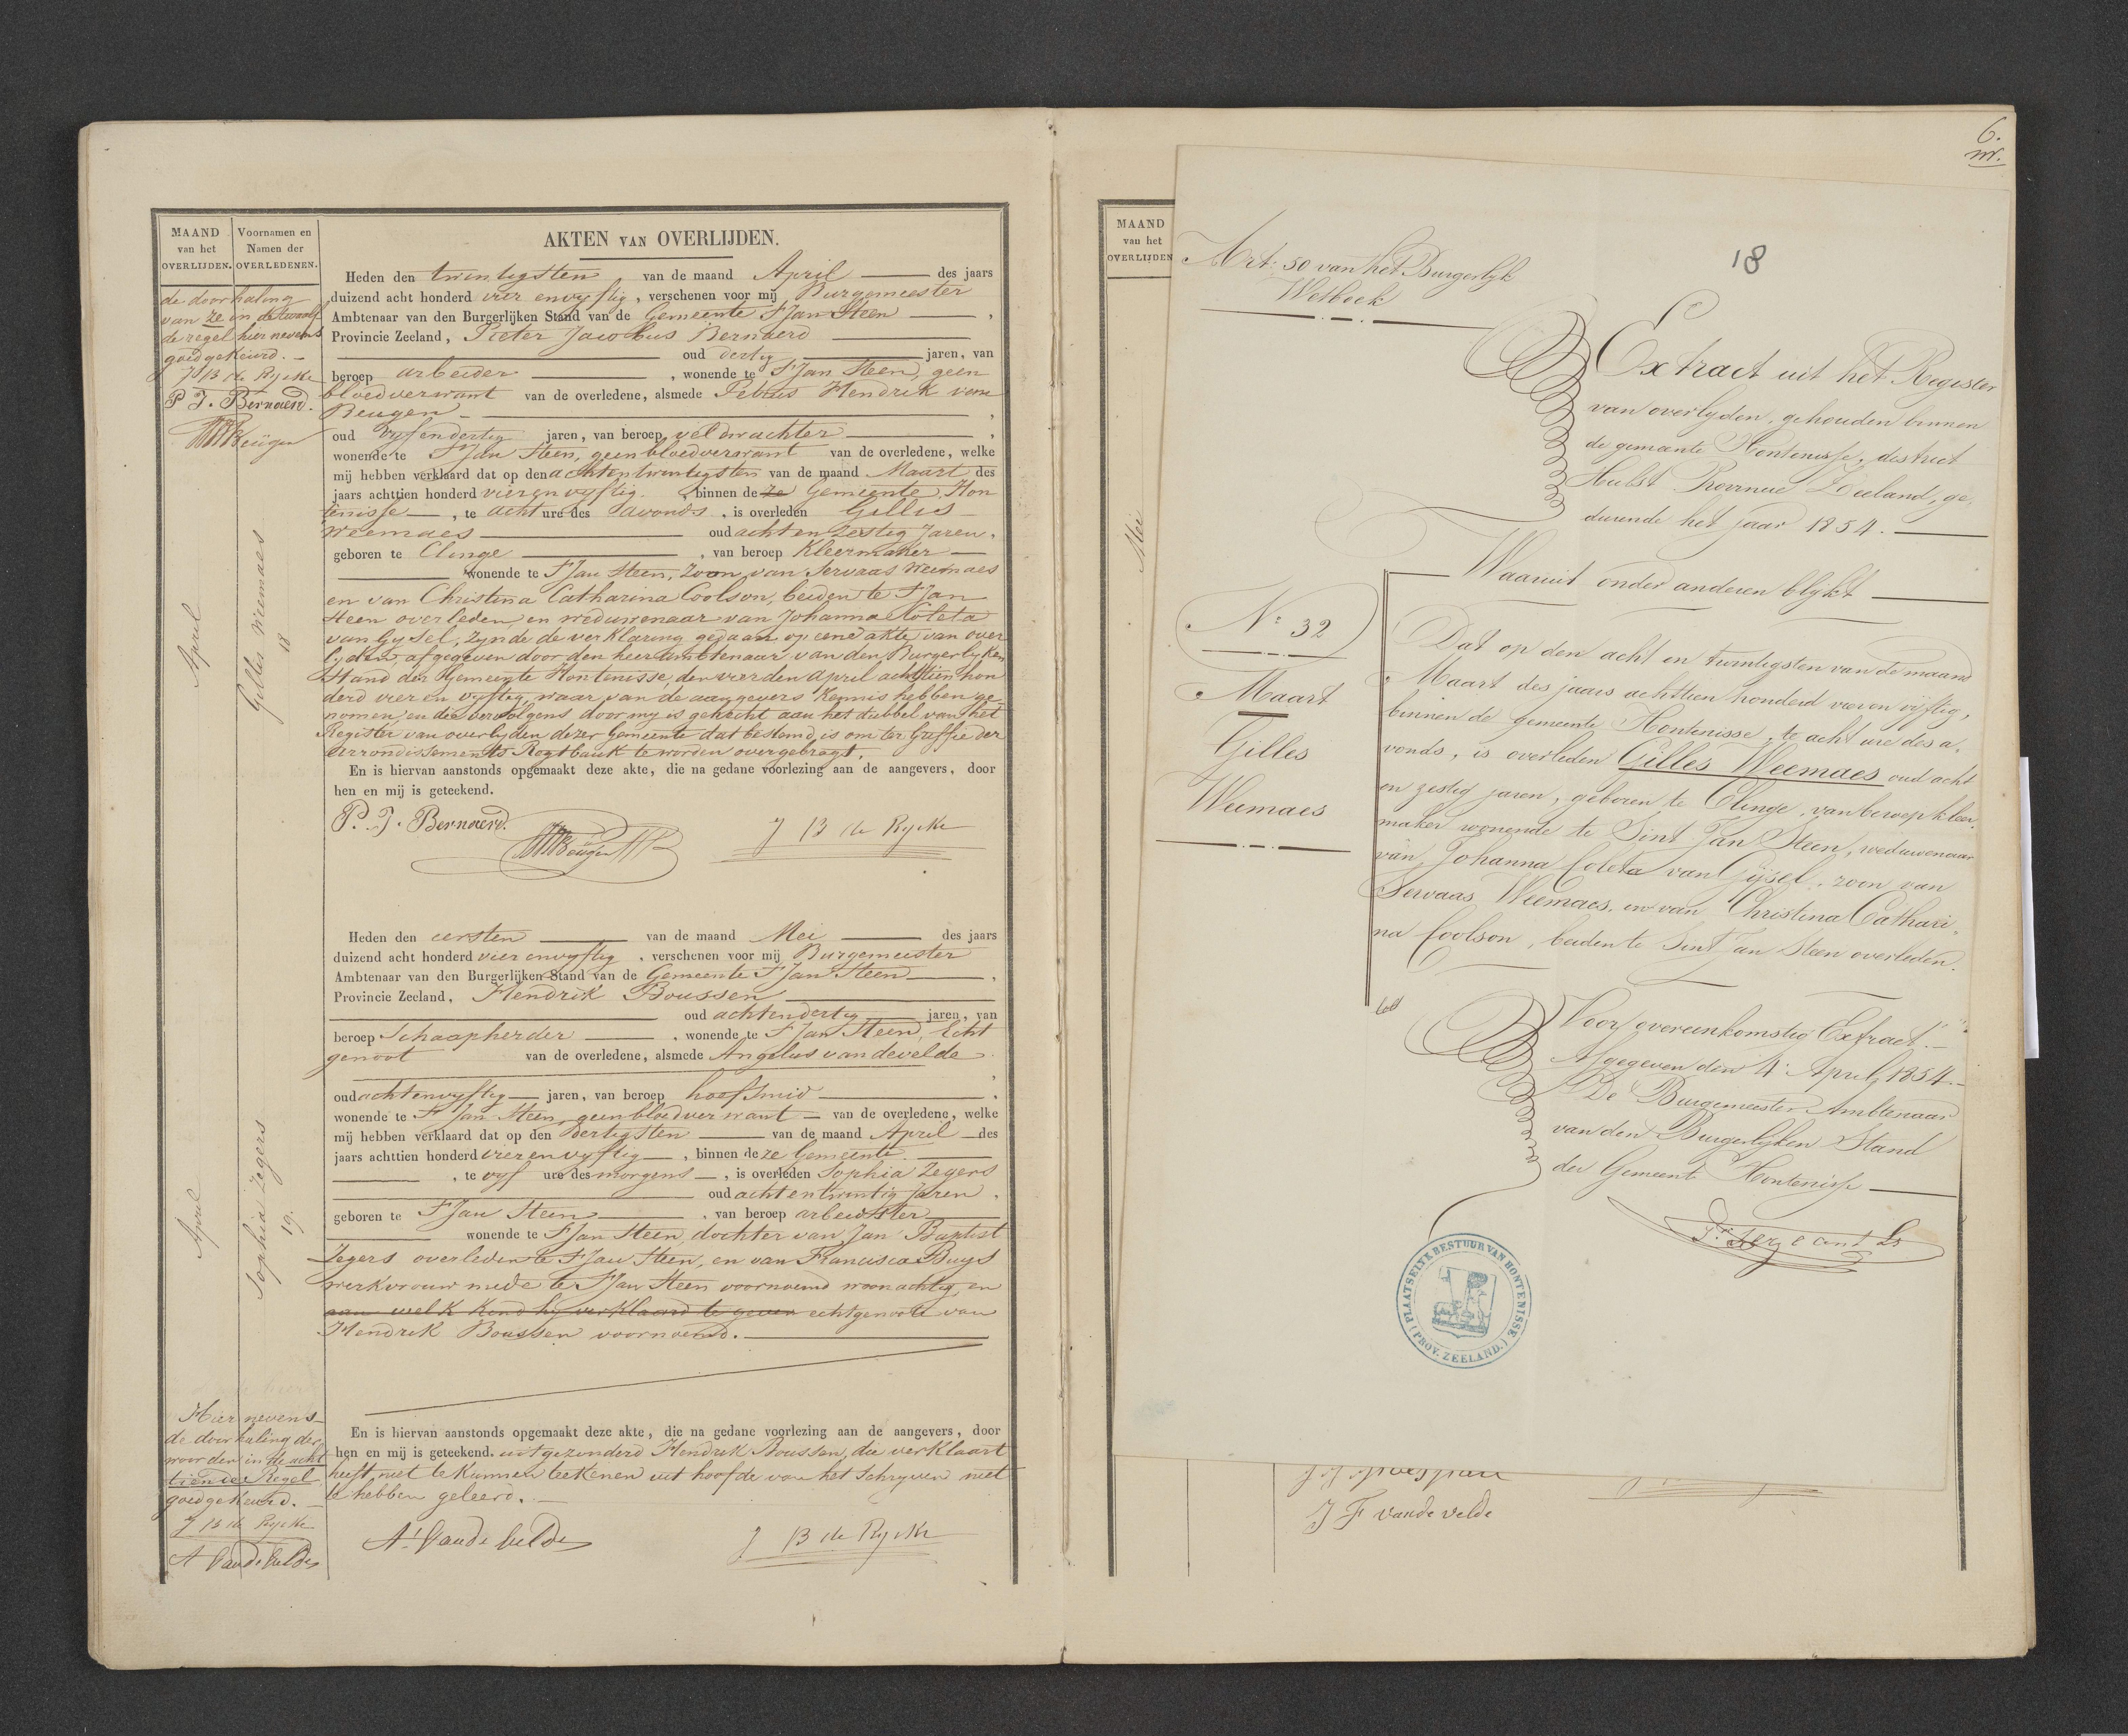 MAAND
van het
OVERLIJDEN.
Voornamen en
Namen der
OVERLEDENEN.
AKTEN VAN OVERLIJDEN.
de doorhaling
van ze in de twaalf
de regel hier nevens
goedgekeurd. –
J B de Rycke
P J. Bernaerd.
April
Gilles Weemaes
18
Heden den twintigsten van de maand April des jaars
duizend acht honderd vier envyftig, verschenen voor mij Burgemeester
Ambtenaar van den Burgerlijken Stand van de Gemeente St Jan Steen,
Provincie Zeeland, Pieter Jacobus Bernaerd
oud dertig jaren, van
beroep arbeider, wonende te St Jan Steen, geen
bloedverwant van de overledene, alsmede Petrus Hendrik van
Beugen
oud vyfendertig jaren, van beroep veldwachter,
wonende te St Jan Steen, geen bloedverwant van de overledene, welke
mij hebben verklaard dat op den achtentwintigsten van de maand Maart des
jaars achttien honderd vierenvyftig, binnen de ze Gemeente Hon
tenisse, te acht ure des avonds, is overleden Gillis
Weemaes oud achtenzestig Jaren,
geboren te Clinge, van beroep Kleermaker
wonende te St Jan Steen, zoon van Servaas Weemaes
en van Christina Catharina Coolson, beiden te St Jan
Steen overleden, en weduwenaar van Johanna Coleta
van Gysel, zynde de verklaring gedaan op eene akte van over
lyden, afgegeven door den heer ambtenaar van den Burgerlyken
Stand der Gemeente Hontenisse, den vierden April achttien hon
derd vier en vyftig, waar van de aangevers kennis hebben ge
nomen, en die vervolgens door my is gehecht aan het dubbel van het
Register van overlyden dezer Gemeente dat bestemd is om ter Griffie der
Arrondissements Regtbank te worden overgebragt.
En is hiervan aanstonds opgemaakt deze akte, die na gedane voorlezing aan de aangevers, door
hen en mij is geteekend.
P. J. Bernaerd.
J B de Rycke
April
Sophia Zegers
19.
Heden den eersten van de maand Mei des jaars
duizend acht honderd vier envyftig, verschenen voor mij Burgemeester
Ambtenaar van den Burgerlijken Stand van de Gemeente St Jan Steen,
Provincie Zeeland, Hendrik Boussen
oud achtendertig jaren, van
beroep Schaapherder, wonende te St Jan Steen, Echt
genoot van de overledene, alsmede Angelus van de velde
oud achtenvyftig jaren, van beroep hoefsmid,
wonende te St Jan Steen, geen bloedverwant van de overledene, welke
mij hebben verklaard dat op den dertigsten van de maand April des
jaars achttien honderd vierenvyftig, binnen deze Gemeente
, te vyf ure des morgens, is overleden Sophia Zegers
oud achtentwintig Jaren,
geboren te St Jan Steen, van beroep arbeidster
wonende te St Jan Steen, dochter van Jan Baptist
Zegers overleden te St Jan Steen, en van Francisca Buys
werkvrouw mede te St Jan Steen voornoemd woonachtig, en
aan welk kend hy verklaard te geven echtgenoote van
Hendrik Boussen voornoemd.
Hier nevens
de doorhaling der
woorden in de acht
tiende Regel
goedgekeurd.
J B de Rycke
A Van de Velde
En is hiervan aanstonds opgemaakt deze akte, die na gedane voorlezing aan de aangevers, door
hen en mij is geteekend. uitgezonderd Hendrik Boussen, die verklaart
heeft niet te kunnen teekenen uit hoofde van het Schryven niet
te hebben geleerd.
A. Van de Velde
J B de Rycke
6.
MAAND
van het
OVERLIJDEN
Mei
Art: 50 van het Burgerlyk
Wetboek
18
Extract uit het Register
van overlyden, gehouden binnen
de gemeente Hontenisse, district
Hulst Provincie Zeeland, ge,
durende het Jaar 1854.
Waaruit onder anderen blykt
No 32
Maart
Gilles
Weemaes
Dat op den acht en twintigsten van de maand
Maart des jaars achttien honderd vier en vijftig,
binnen de gemeente Hontenisse, te acht ure des a,
vonds, is overleden Gilles Weemaes oud acht
en zestig jaren, geboren te Clinge, van beroep kleer,
maker wonende te Sint Jan Steen, weduwenaar
van Johanna Coleta van Gijsel, zoon van
Servaas Weemaes, en van Christina Cathari,
na Coolson, beiden te Sint Jan Steen overleden.
Voor overeenkomstig Extract.
Afgegeven den 4 April 1854.
De Burgemeester Ambtenaar
van den Burgerlyken Stand
der Gemeente Hontenisse
PLAATSELYK BESTUUR VAN HONTENISSE
(PROV. ZEELAND.)
J F vande velde